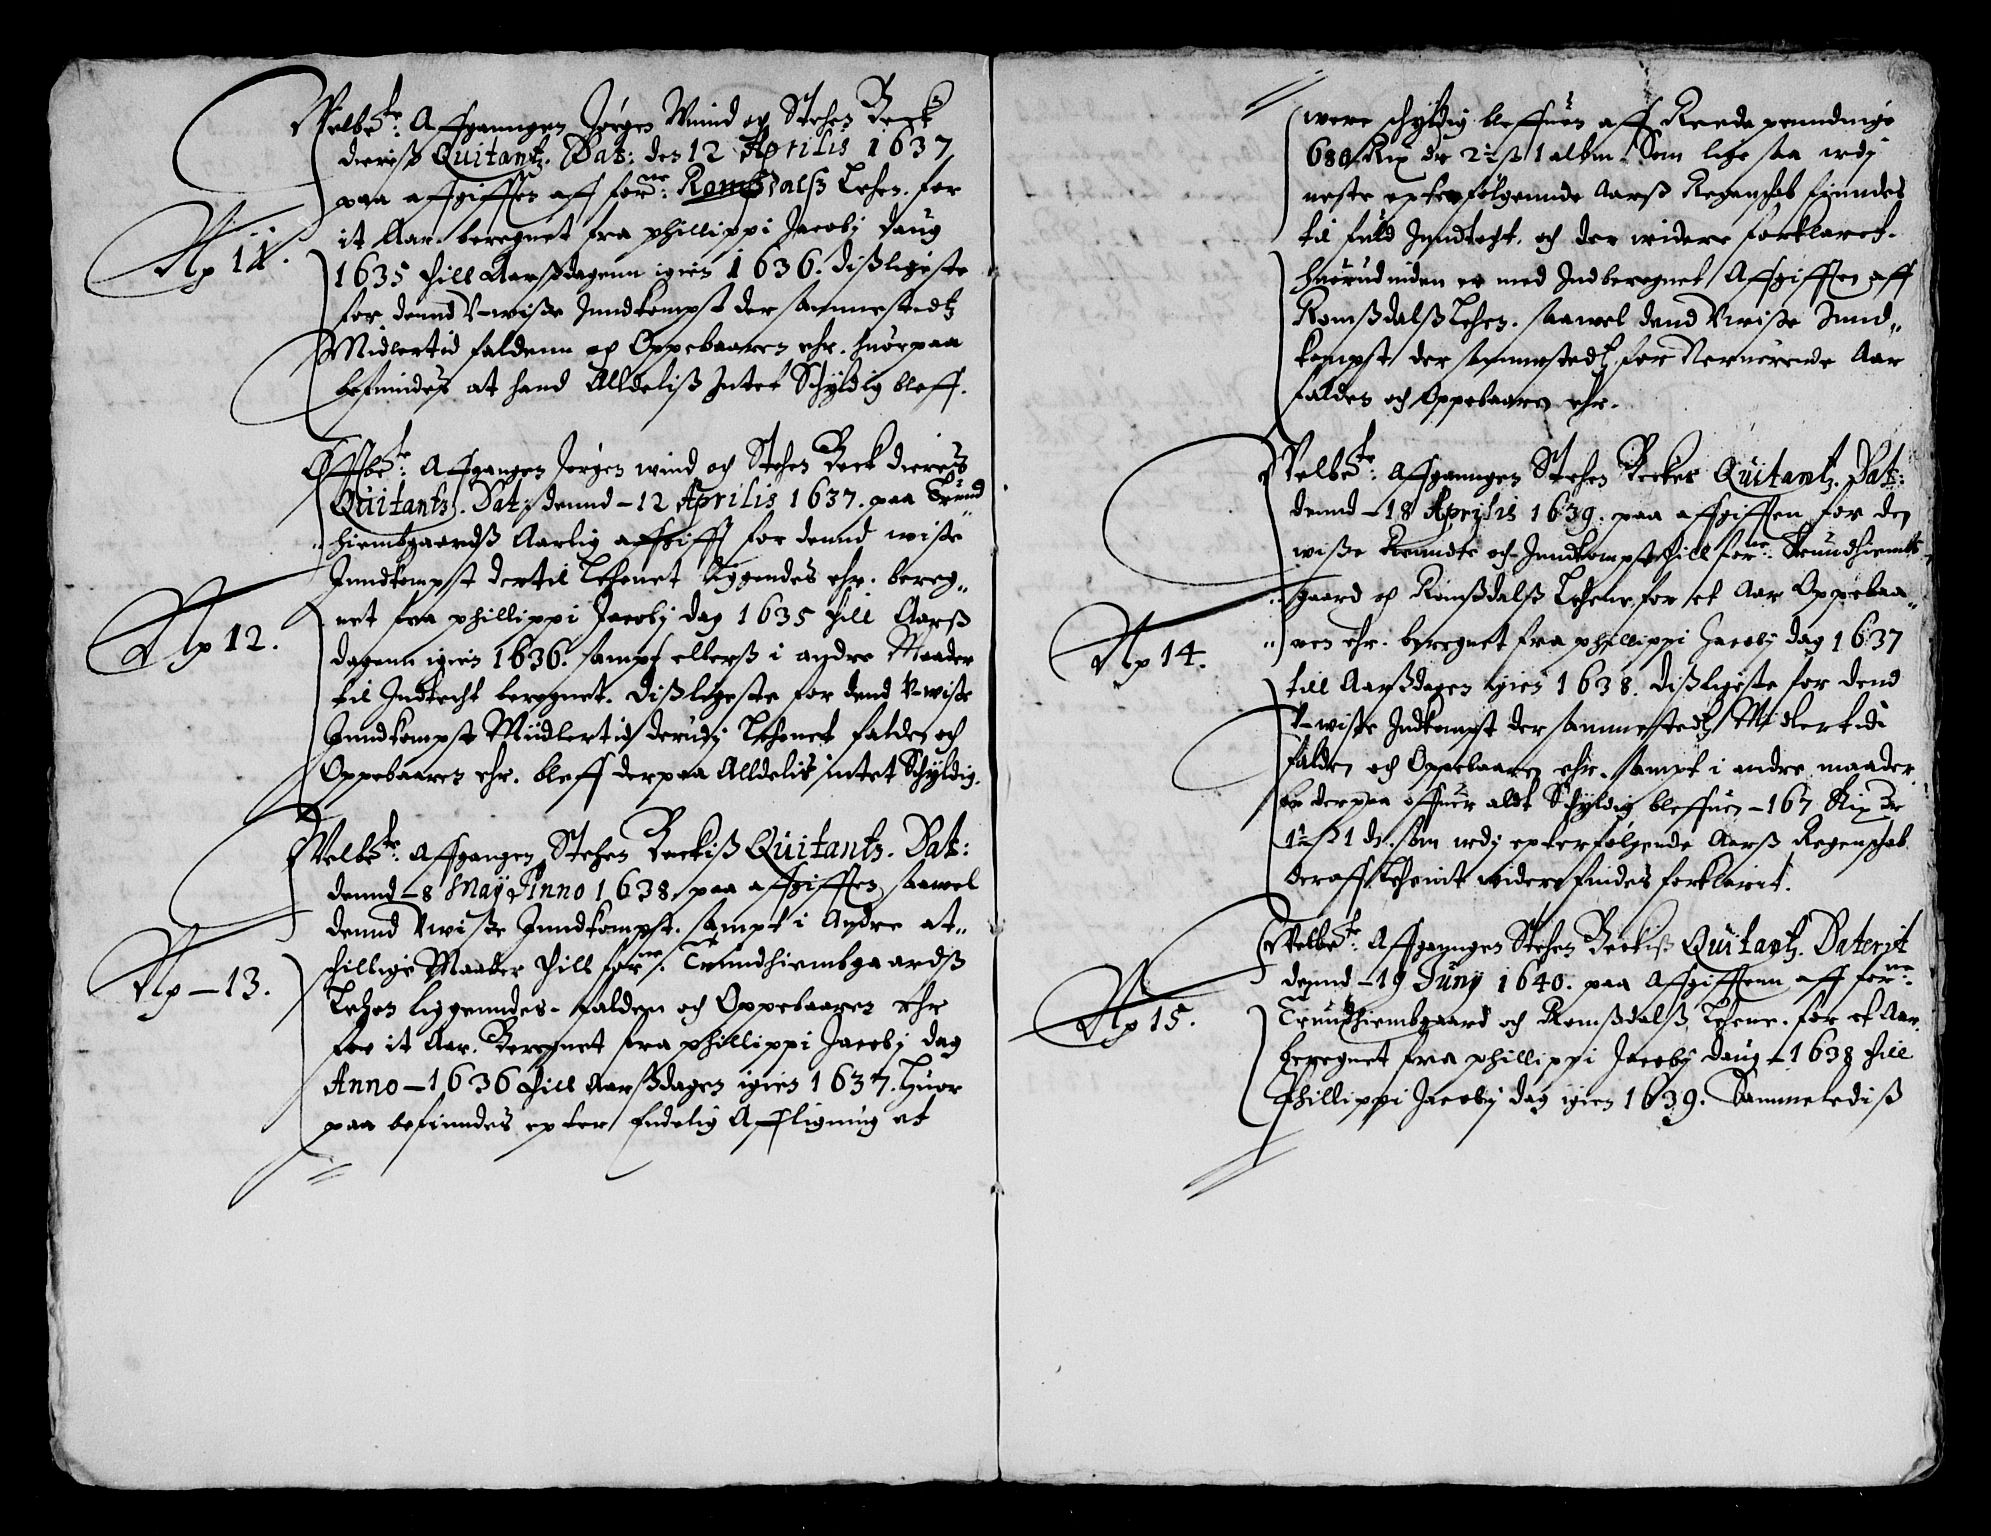 Velb:te: Affganngen Jørgen Wiind och Stehen Beck
dieriß Quitantz. Dat: den 12 Aprilis 1637
paa affgifften aff forne: Romsdalß Lehen. for
it Aar. beregnet fra phillippi Jacobj daug
No 11.
1635 thill Aarßdagenn igien 1636. dißligeste
for dennd V-wiße Inndkompst der sammestedtz
Midlertid faldenn och Oppebaaren ehr. huorpaa
befindes at hand Alldeliß Intet Schyldig bleff.
Offbe:te: Affgangen Jørgen wind och Stehen Beck dieres
Quitantz. Dat: dennd - 12 Aprilis 1637. paa Trund„
„hiembgaardß Aarlig affgifft for dennd wiße
Inndkompst dertil Lehenet liggendes ehr. bereg„
No 12.
net fra phillippi Jacobj dag 1635 thill Aarß
dagenn igien 1636. sampt ellerß i andre Maader
til Indtecht beregnet. dißligeste for dend V-wiße
Inndkompst Midlertid derudj Lehenet falden och
Oppebaaren ehr. bleff derpaa Alldelis intet Schyldig.
Velb:te: Affgangen Stehen Beckiß Quitantz. Dat:
dennd - 8 Maÿ Anno 1638. paa affgifften saawel
dennd Vwiße Inndkompst. sampt i Andre at„
No - 13.
schillige Maader thill forne: Trundhiembgaardß
Lehen liggenndes - falden och Oppebaaren ehr
for it Aar. Beregnet fra phillippi Jacobj dag
Anno - 1636 thill Aarßdagen igien 1637. Huor
paa befinndes epter Endelig Affligning at
were schyldig bleffuen aff Reede penndinge
680 Rix dr 2½ ß 1 alb:m. Som lige saa udj
neste epterfølgennde Aarß Regenschab finndes
til fuld Inndtegt. och der widere forklaret.
huorudinden er med Indberegnet Affgifften aff
Romßdalß Lehen. saawel dend Vwiße Innd„
kompst der sammestedtz for Neruerende Aar
falden och Oppebaaren ehr.
Velb:te: Affganngen Stehen Beckes Quitantz. Dat:
dennd - 18 Aprilis 1639. paa affgifften for den
wiße Rennte och Inndkompst thill forne: Trundhiembs
„gaard och Romßdalß Lehene for et Aar Oppebaa„
No 14.
„ren ehr. beregnet fra phillippi Jacobj dag 1637
till Aarßdagen igien 1638. dißligeste for dend
V-wiße Indkompst der sammestedtz Midlertidi
falden och Oppebaaren ehr. sampt i andre maader.
er derpaa offuer aldt Schyldig bleffuen - 167 Rix dr
1½ ß 1 d. som udj epterfølgende Aarß Regenschab
deraff Lehenit widere findes forklarit.
Velbe:te: Affganngen Stehen Beckiß Quitantz. Daterit
dennd - 19 Juny 1640. paa Affgifftenn aff forne:
No 15.
Trundhiembgaard och Romßdalß Lehene. for et Aar
beregnet fra phillippi Jacobj daug - 1638 thill
Phillippi Jacobj dag igien 1639. Sammelediß